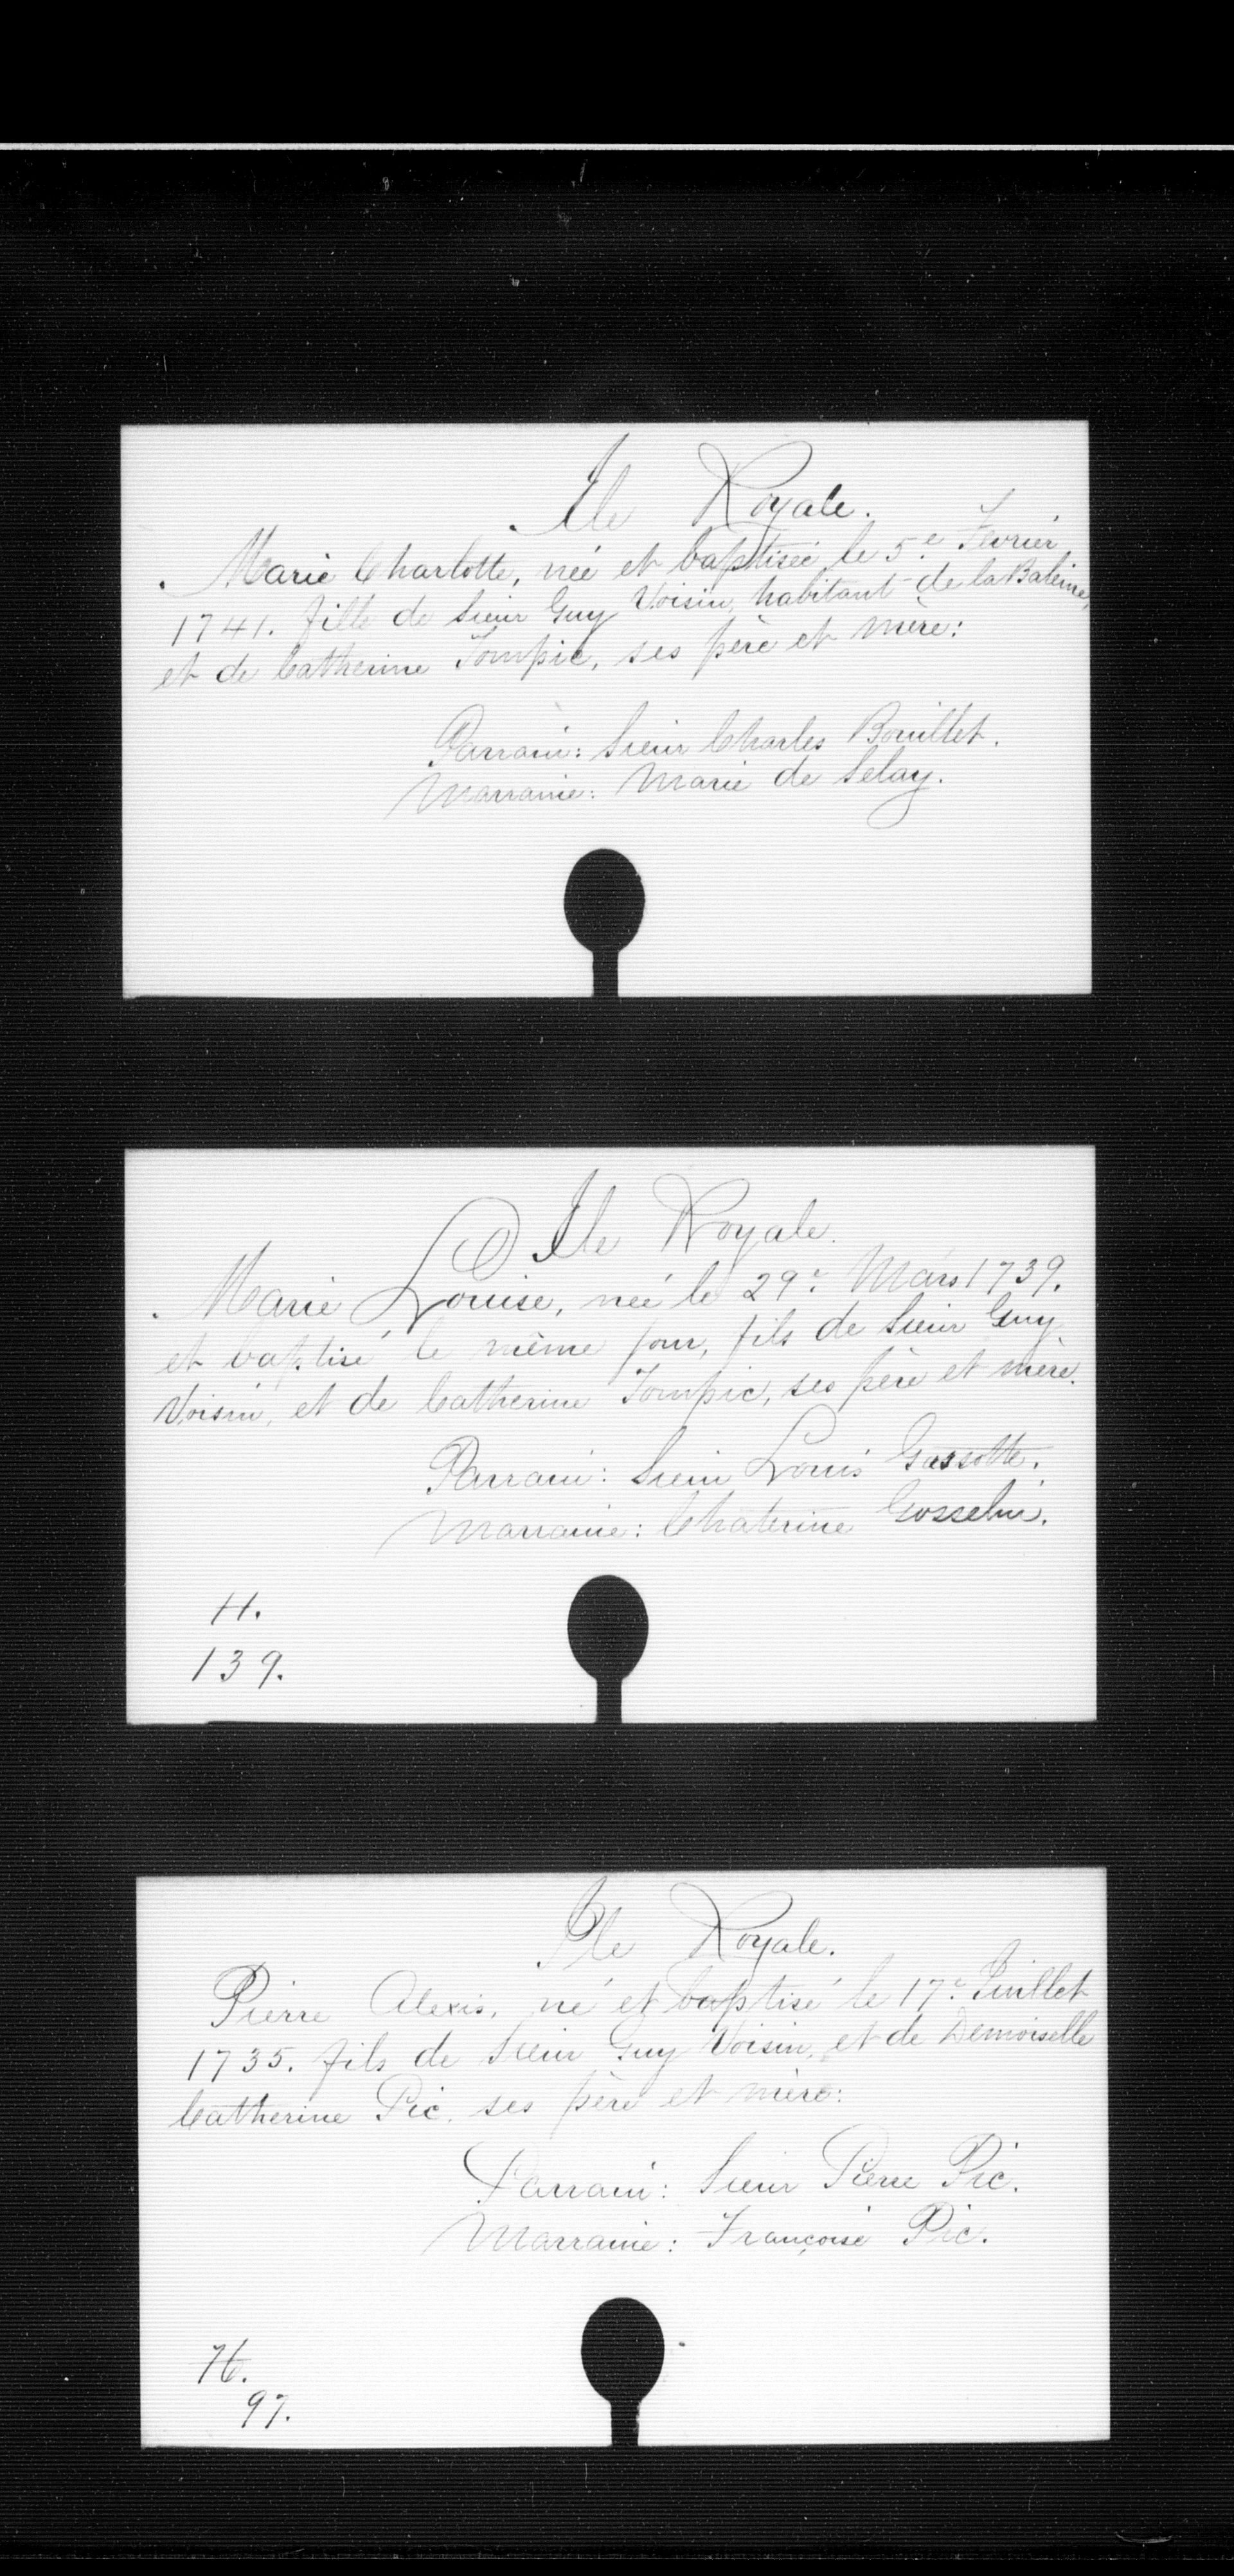 Ile Royale.
Marie Charlotte, née et baptisée le 5e. Fevrier
1741. fille de Sieur Guy Voisin, habitant de la Baleine,
et de Catherine Tompic, ses père et mère:
Parrain: Sieur Charles Bouillet.
Marraine: Marie de Selay.
Ile Royale.
Marie Louise, née le 29e. Mars 1739.
et baptisé le même jour, fils de Sieur Guy
Voisin, et de Catherine Tompic, ses père et mère.
Parrain: Sieur Louis Gassotte.
Marraine: Chaterine Gosselin.
H.
139.
Ile Royale.
Pierre Alexis, né et baptisé le 17e. Juillet
1735. fils de Sieur Guy Voisin, et de Demoiselle
Catherine Pic, ses père et mère:
Parrain: Sieur Pierre Pic.
Marraine: Françoise Pic.
H.
97.